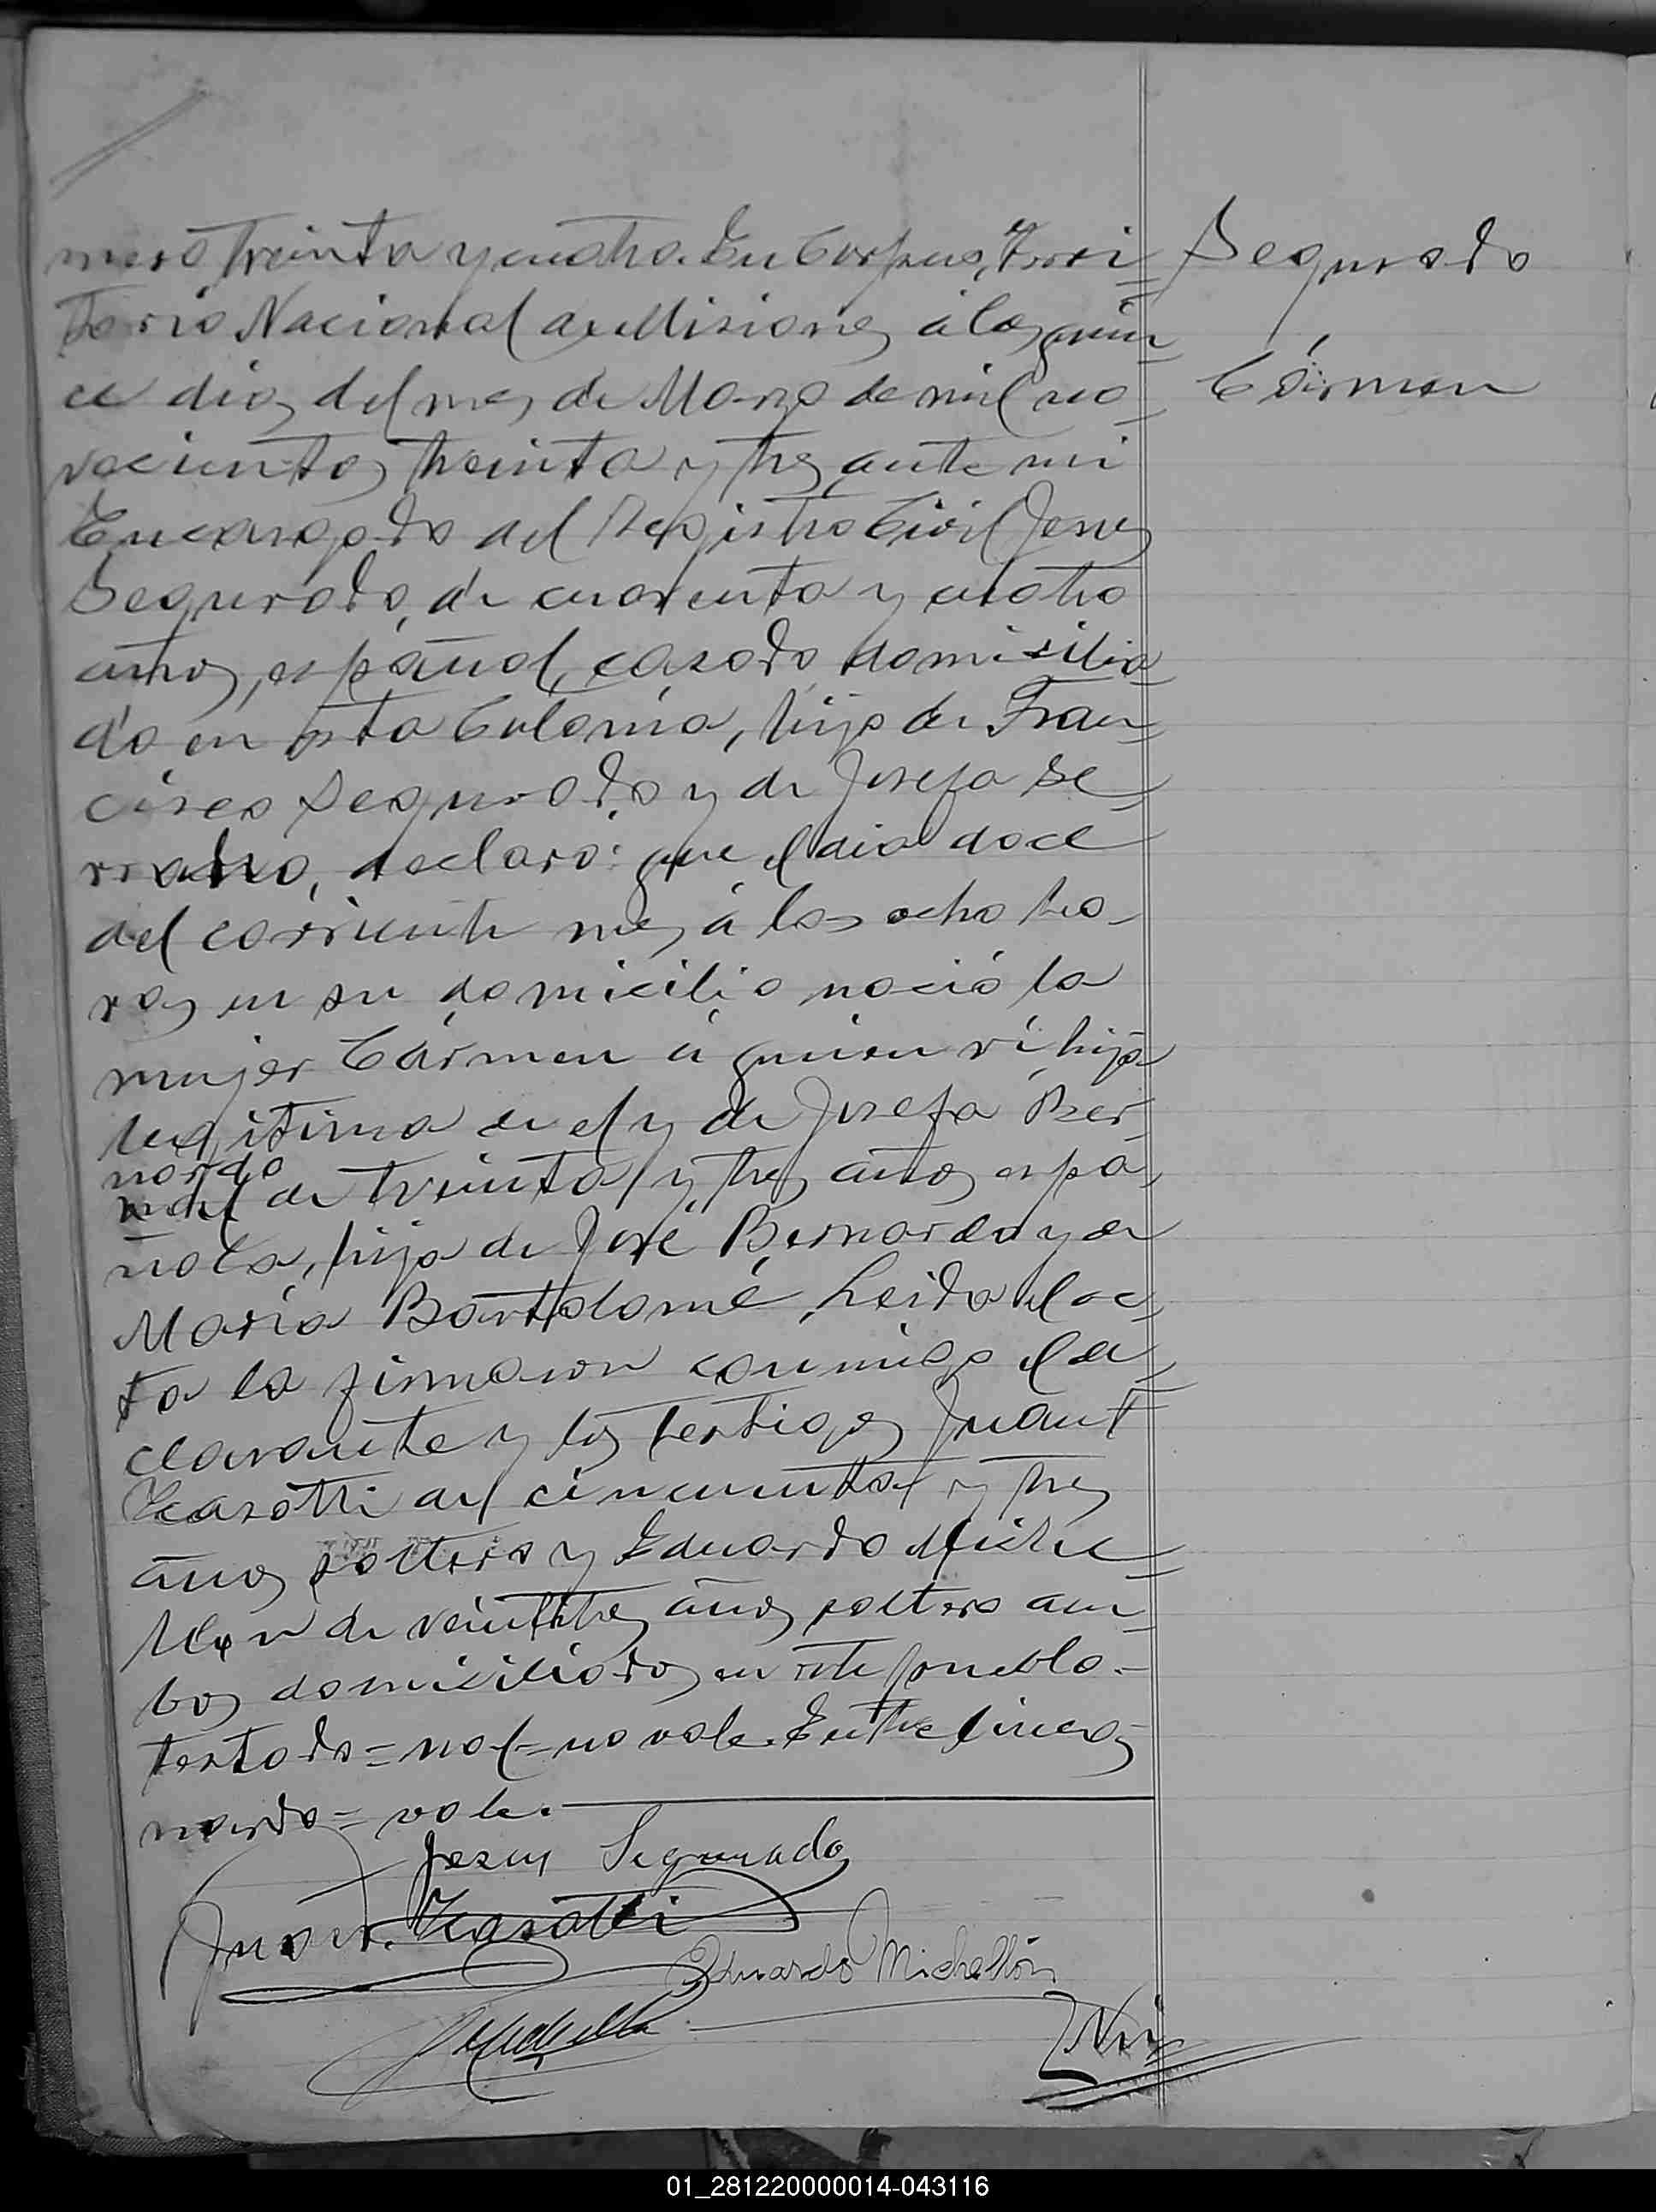 mero treinta y cuatro. En Corpus, Terri
torio Nacional de Misiones á los quin
ce dias del mes de Marzo de mil no
vecientos treinta y tres ante mi
Encargado del Registro Civil Jesus
Segurado, de cuarenta y cuatro
años, español, casado, domicilia
do en esta Colonia, hijo de Fran
cisco Segurado y de Josefa Se
rrano, declaró: que el dia doce
del corriente mes á las ocho ho
ras en su domicilio nació la
mujer Cármen á quien ví hija
legitima de el y de Josefa Ber
nardo
nal de treinta y tres años espa
ñola, hija de José Bernardo y de
María Bartolomé, Leida el ac
ta la firmaron conmigo el de
clarante y los testigos Juan
Casotti de cincuenta y tres
años soltero y Eduardo Miche
llon de veintitres años soltero am
bos domiciliados en este pueblo.
testado=nal=no vale. Entre lineas
nardo=vale.
Segurado
Cármen
Jesus Segurado
Juan Casotti
Eduardo Michellón